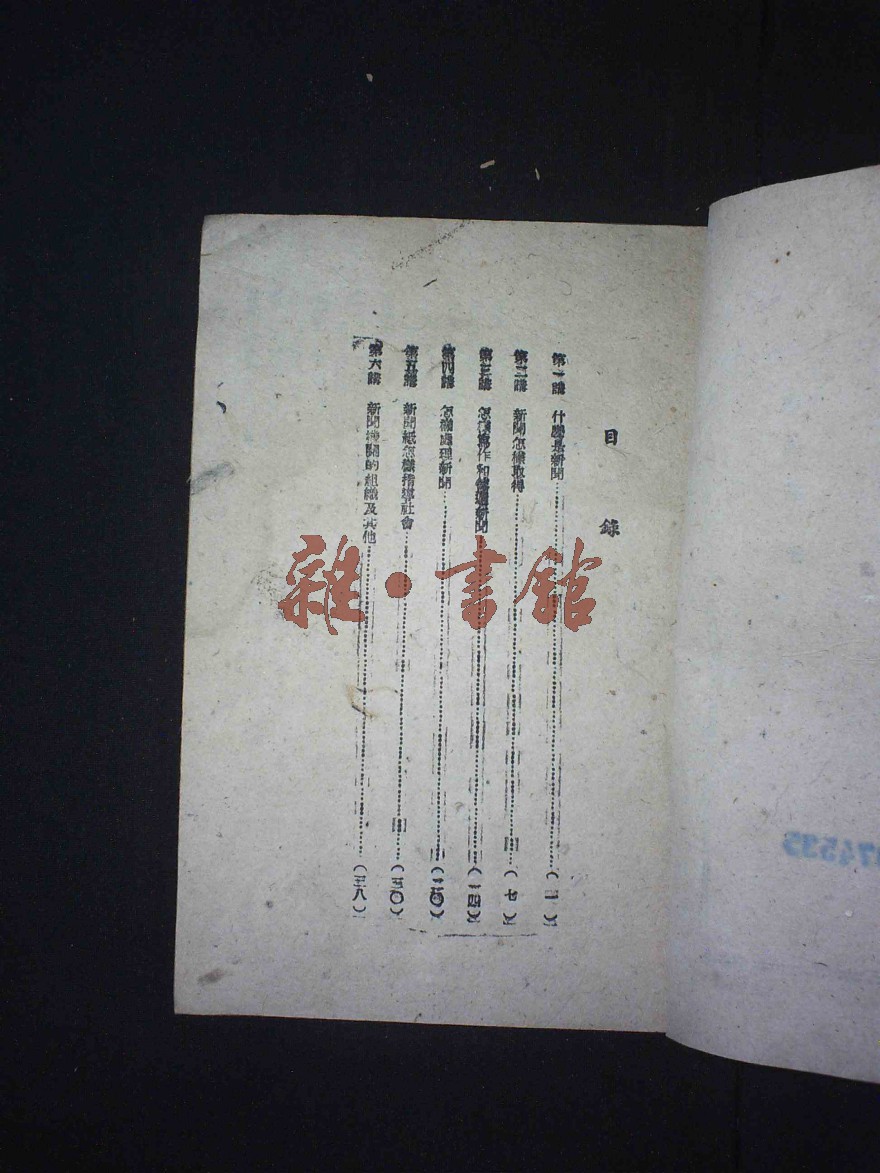 目錄
第一講 什麼是新聞……(一)
第二講 新聞怎樣取得……(七)
第三講 怎樣寫作和編新聞……(一四)
第四講 怎樣處理新聞……(二〇)
第五講 新聞紙怎樣指導社會……(三〇)
第六講 新聞機關的組織及其他……(三八)
雜·書館